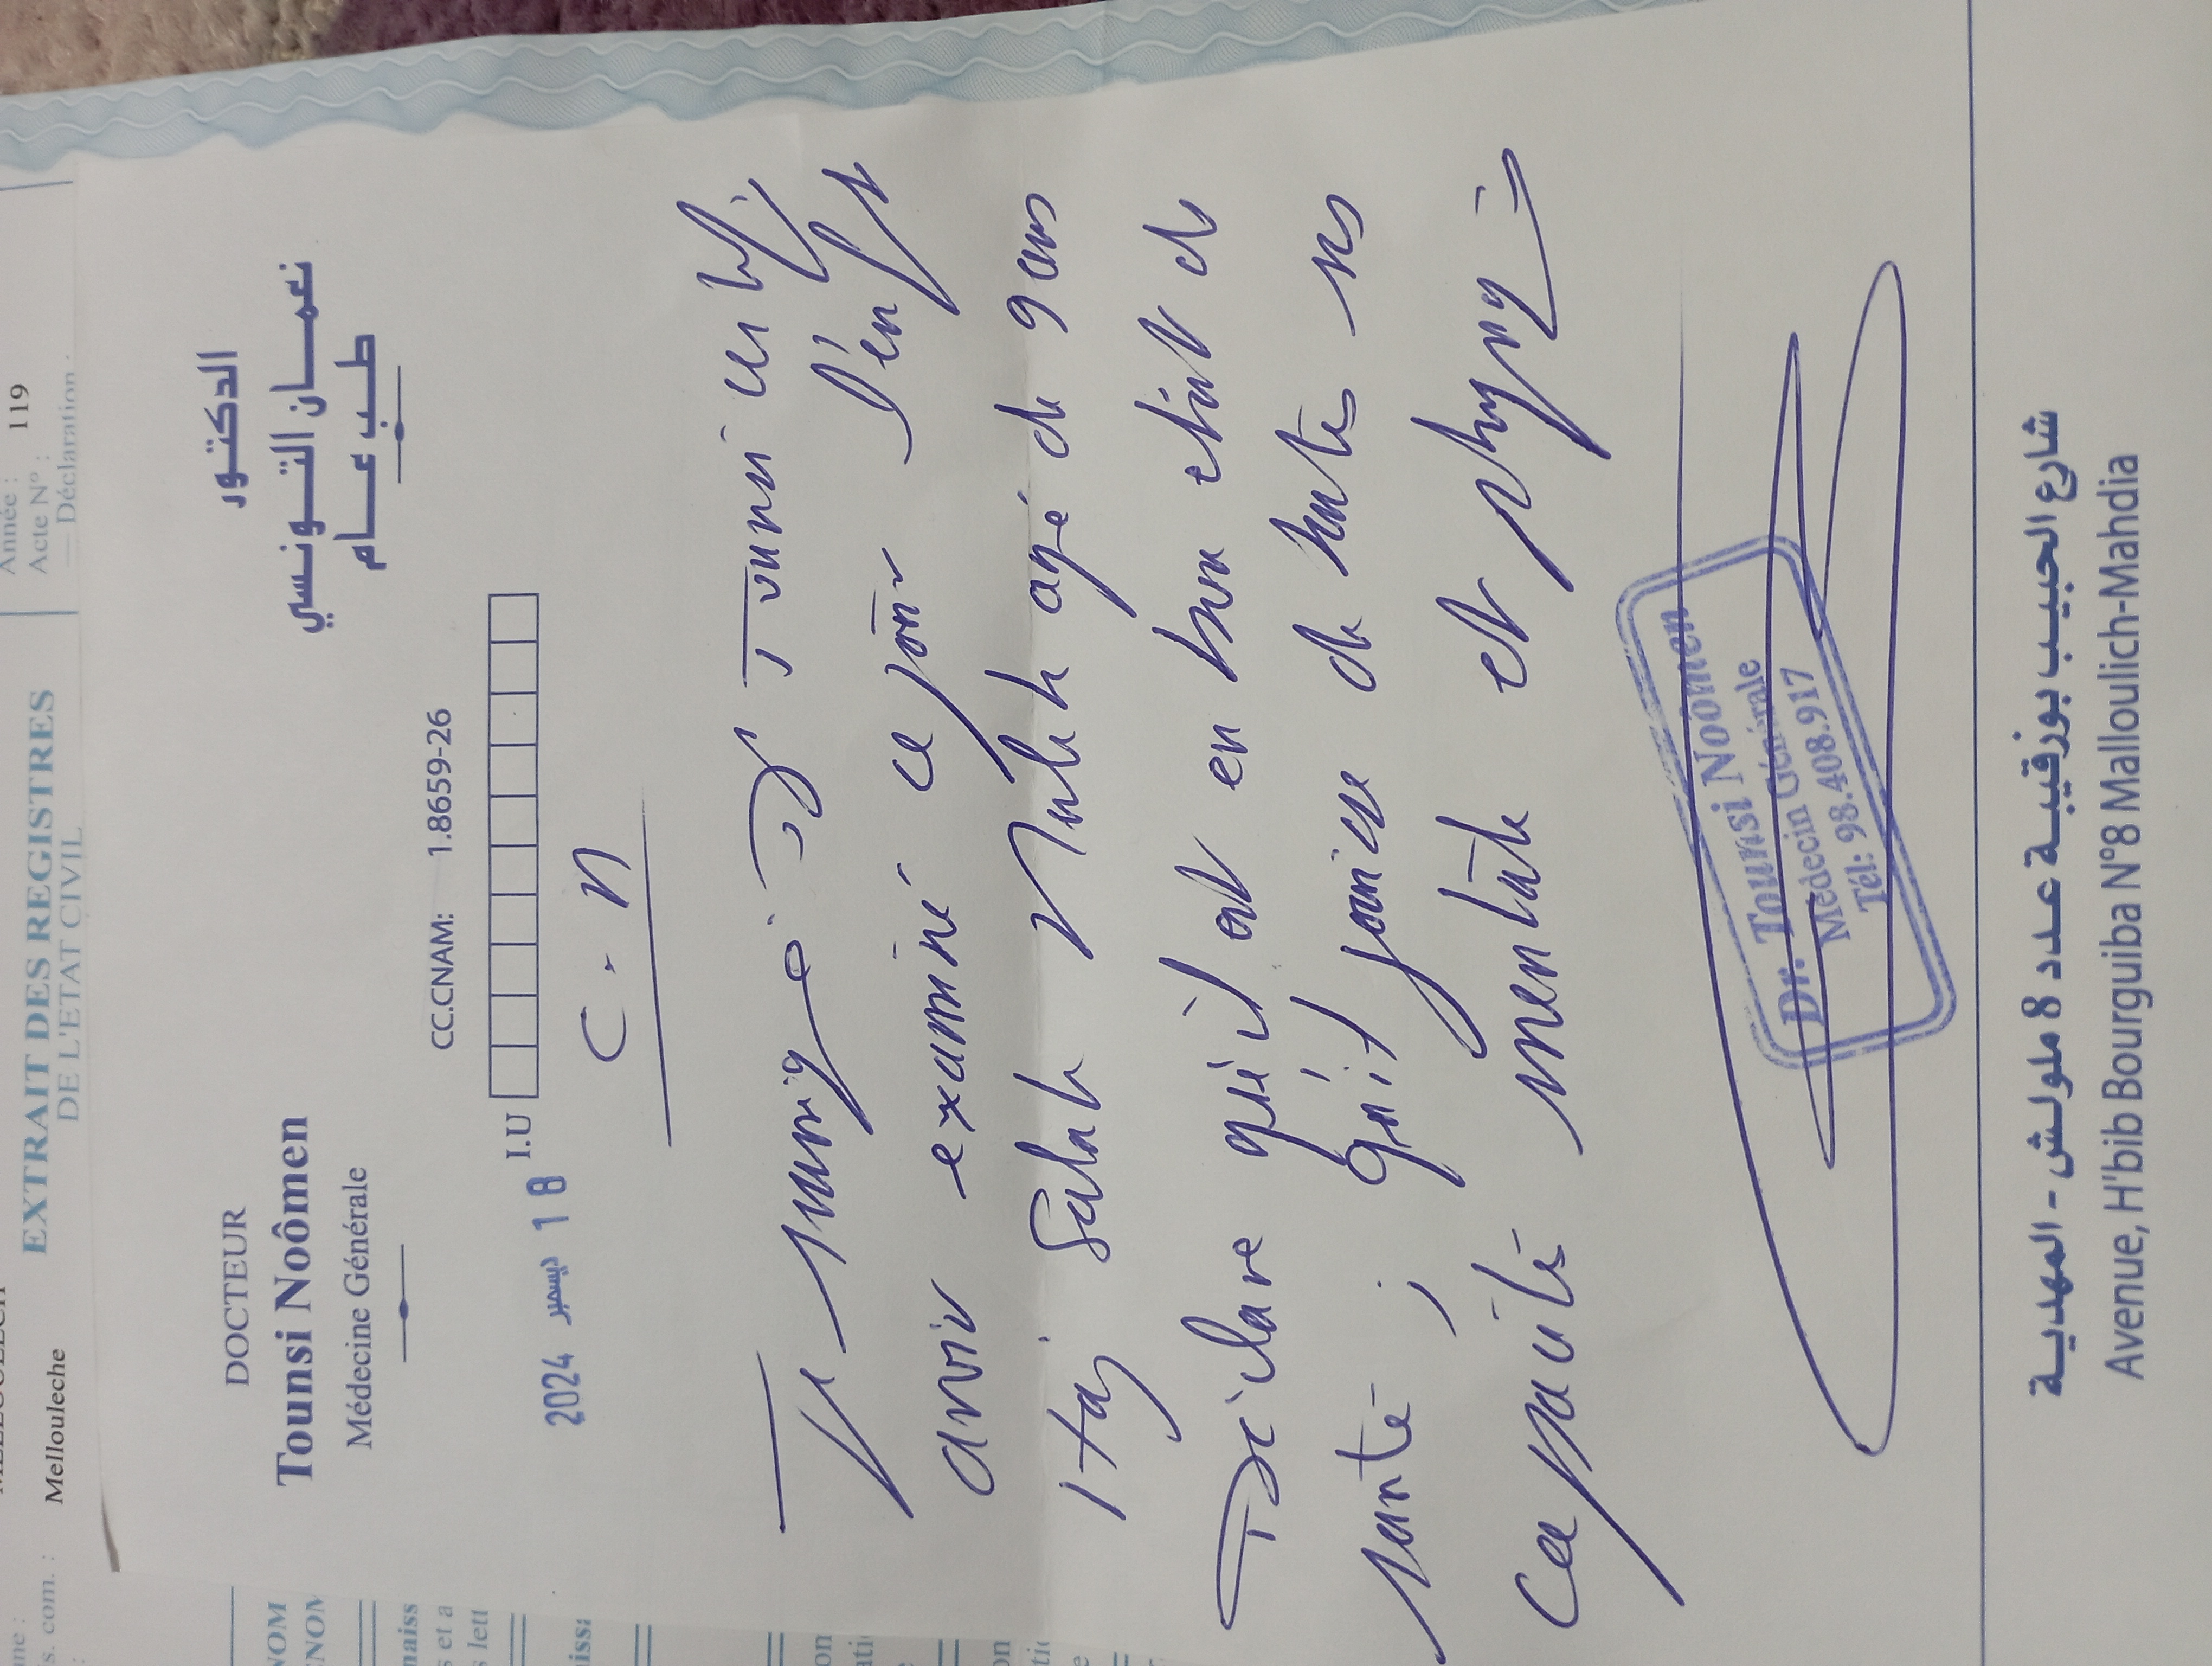 Année :
Acte N° : 119
Déclaration
EXTRAIT DES REGISTRES
DE L'ETAT CIVIL
Mellouleche
s. com. :
DOCTEUR
Tounsi Noômen
Médecine Générale
الدكتور
نعمان التونسي
طب عام
CC.CNAM: 1.8659-26
I.U
2024 ديسمبر 18
C. M
Je soussigné Dr Tounsi certifie
avoir examiné ce jour l'enft
Haj Salah agé de 9 ans
Déclare qu'il est en bon etat de
santé ; qu'il jouisse de toutes ses
capacités mentale et physiq
Dr. Tounsi Noômen
Médecin Générale
Tél: 98.408.917
شارع الحبيب بورقيبة عدد 8 ملولش - المهدية
Avenue, H'bib Bourguiba N°8 Malloulich-Mahdia